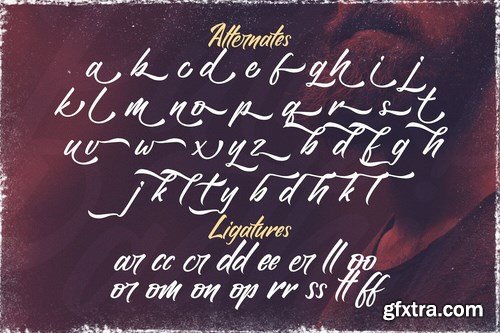 Alternates
a b c d e f g h i j
k l m n o p q r s t
u v w x y z b d f g h
j k l t y b d h k l
Ligatures
ar cc cr dd ee er ll oo
or om on op rr ss tt ff
gfxtra.com